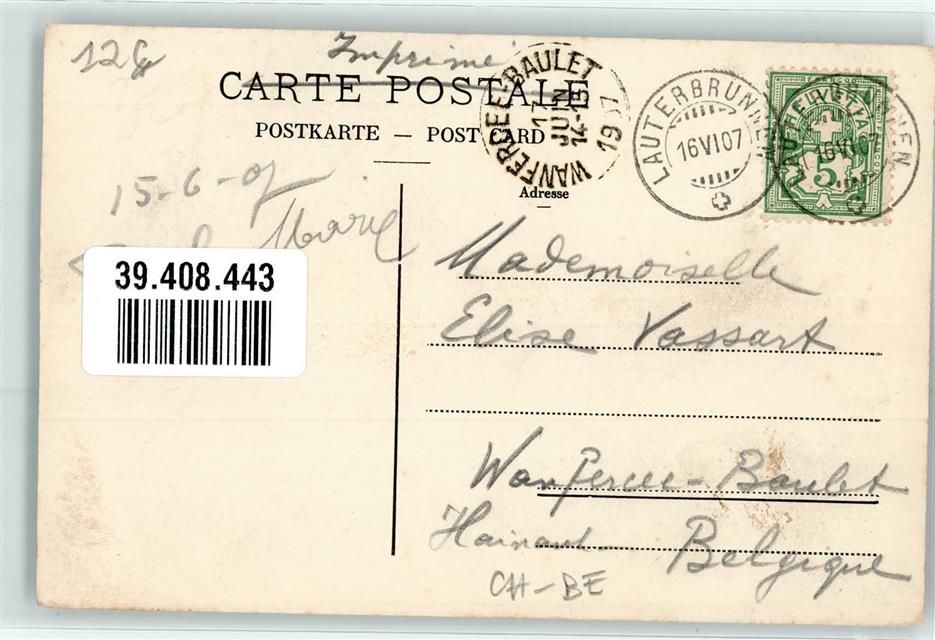 Imprimé
CARTE POSTALE
POSTKARTE — POST CARD
WANFERCEE-BAULET
17
JUIN
14-15
1907
LAUTERBRUNNEN
16 VI 07
LAUTERBRUNNEN
16 VI 07
HELVETIA
5
Adresse
15-6-07
Marie
39.408.443
Mademoiselle
Elise Vassart
Wanfercée-Baulet
Hainaut Belgique
CH-BE